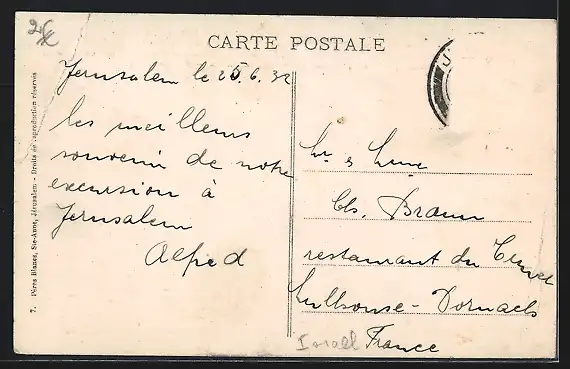 CARTE POSTALE
Jerusalem le 25.6.32
les meilleurs
souvenir de notre
excursion à
Jerusalem
Alfred
Mr & Mme
Chs. Braun
restaurant du
Mulhouse-Dornach
France
Israel
7. Pères Blancs, Ste-Anne, Jérusalem - Droits de reproduction réservés